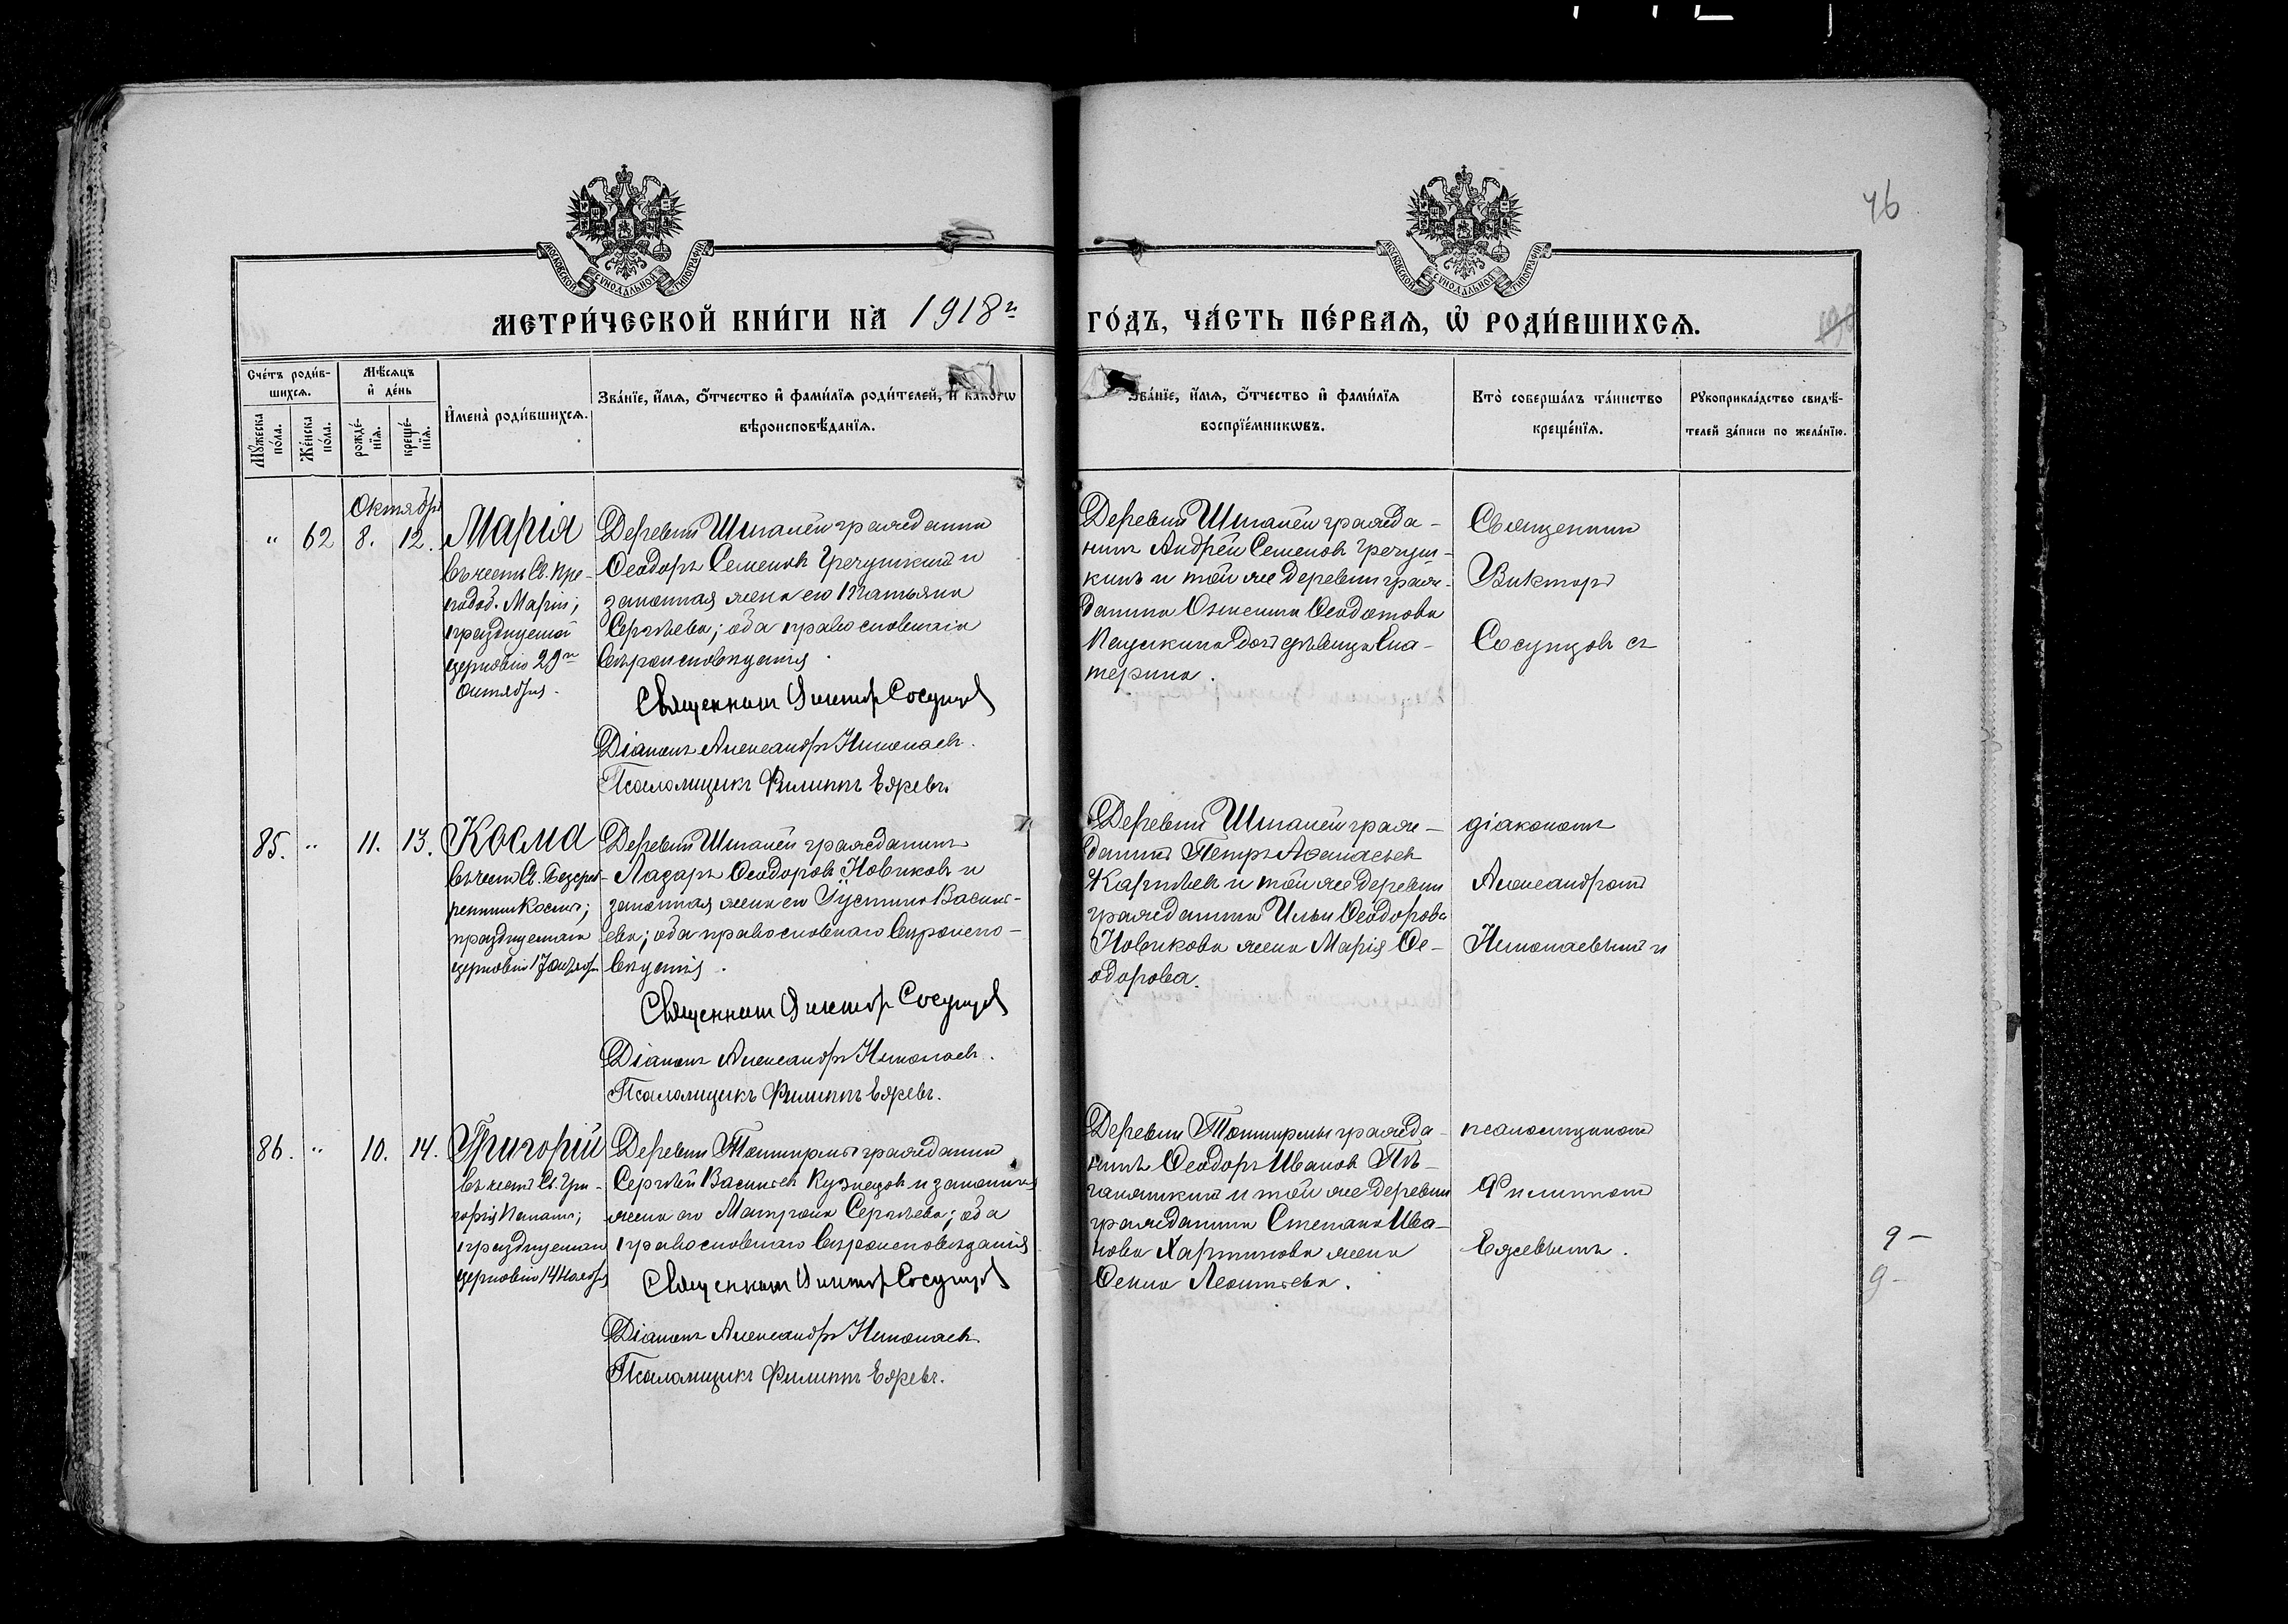 46
МОСКОВСКОЙ СѴНОДАЛЬНОЙ ТИПОГРАФІИ
МОСКОВСКОЙ СѴНОДАЛЬНОЙ ТИПОГРАФІИ
МЕТРИ́ЧЕСКОЙ КНИ́ГИ НА 1918й ГО́ДЪ, ЧА́СТЬ ПЕ́РВАѦ, Ѽ РОДИ́ВШИХСѦ.
Сче́тъ роди́в-
шихсѧ.
Мꙋ́жеска по́ла.
Же́нска по́ла.
Мѣ́сѧцъ
и҆ де́нь
рожде́-
нїѧ.
креще́-
нїѧ.
И҆мена̀ роди́вшихсѧ.
Зва́нїе, и҆́мѧ, ѻ҆́тчество и҆ фамн́лїѧ роди́телей, и҆ како́гѡ
вѣроисповѣ́данїѧ.
Зва́нїе, и҆́мѧ, ѻ҆́тчество и҆ фами́лїѧ
воспрїе́мникѡвъ.
Кто̀ соверша́лъ та́инство
креще́нїѧ.
Рꙋкоприкла́дство свидѣ́-
телей за́писи по жела́нїю.
Октября
„ 62 8. 12. Марія
въ честь Св. Пре-
подоб. Маріи;
празднуемой
церковію 29го
Октября.
Деревни Шланги гражданинъ
Ѳеодоръ Семеновъ Гречушкинъ и
законная жена его Татьяна
Сергѣева; оба православнаго
вѣроисповѣданія.
Священникъ Викторъ Сосунцов
Діаконъ Александръ Николаевъ.
Псаломщикъ Филиппъ
Деревни гражда-
нинъ Андрей Семеновъ Гречуш-
кинъ и той же деревни граж-
данина Ѳеодотова
дочь дѣвица Ека-
терина.
Священник
Викторъ
Сосунцовъ съ
85. „ 11. 13. Косма
въ честь Св. Безсреб-
ренника Космы;
празднуемаго
церковію 17 октября
Деревни гражданинъ
Лазарь Ѳеодоровъ Новиковъ и
законная жена его Іустина Василь-
ева; оба православнаго вѣроиспо-
вѣданія.
Священникъ Викторъ Сосунцов
Діаконъ Александръ Николаевъ.
Псаломщикъ Филиппъ
Деревни граж-
данинъ Петръ Аѳанасьевъ
и той же деревни
гражданина Ильи Ѳеодорова
Новикова жена Марія Ѳе-
одорова.
діакономъ
Александромъ
Николаевымъ и
86. „ 10. 14. Григорій
въ честь Св. Гри-
горія Паламы;
празднуемаго
церковію 14 Ноября
Деревни гражданинъ
Сергѣй Васильевъ Кузнецовъ и законная
жена его Матрона Сергѣева; оба
православнаго вѣроисповѣданія
Священникъ Викторъ Сосунцов
Діаконъ Александръ Николаевъ.
Псаломщикъ Филиппъ
Деревни гражда-
нинъ Ѳеодоръ Ивановъ
и той же деревни
гражданина Степана Ива-
нова жена
Леонтьева.
псаломщикомъ
Филиппомъ
9 –
9 –